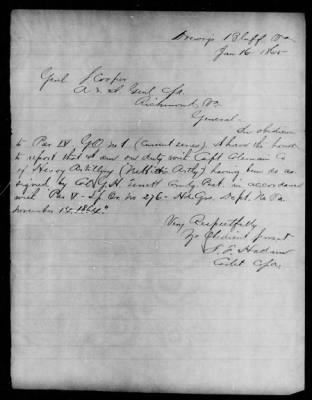 Drewry's Bluff Va
Jan 16 1865
Genl S Cooper
A & I Genl C.S.A.
Richmond, Va
General—
In obedience
to Par IV, G.O. No 1 (current series), I have the honor
to report that I am on duty with Capt Co
of Heavy Artillery having been as
signed by Col Comdg Post in accordance
with Par V - S.p. Or. No 276 - Hd Qrs, Dept. No Va
November 1864."
Very Respectfully
Yr Obedient Servant
Cadet C.S.A.